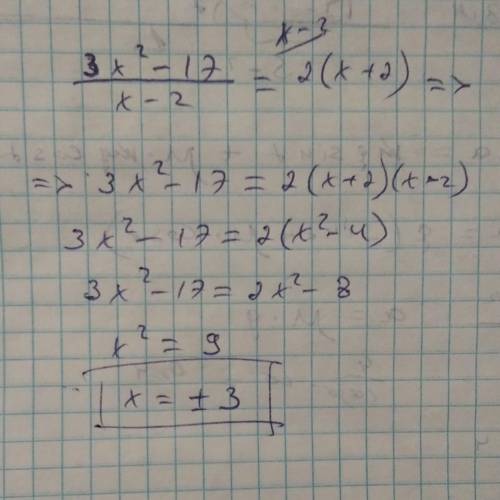 x-3
(3x² - 17)/(x - 2) = 2(x+2) =>
=> 3x² - 17 = 2(x+2)(x-2)
3x² - 17 = 2(x² - 4)
3x² - 17 = 2x² - 8
x² = 9
x = ± 3